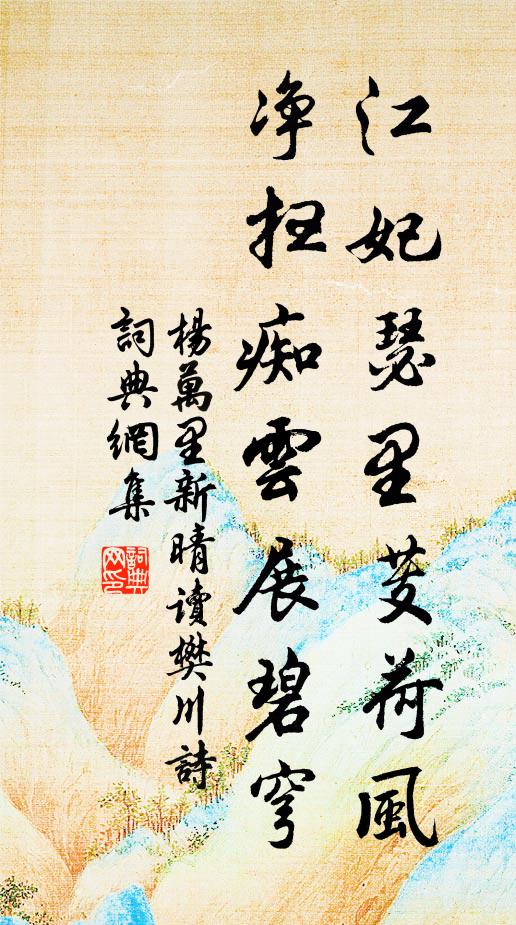 江妃瑟里芰荷風
净掃痴雲展碧穹
楊萬里新晴讀樊川詩
詞典網集
詞典
网印